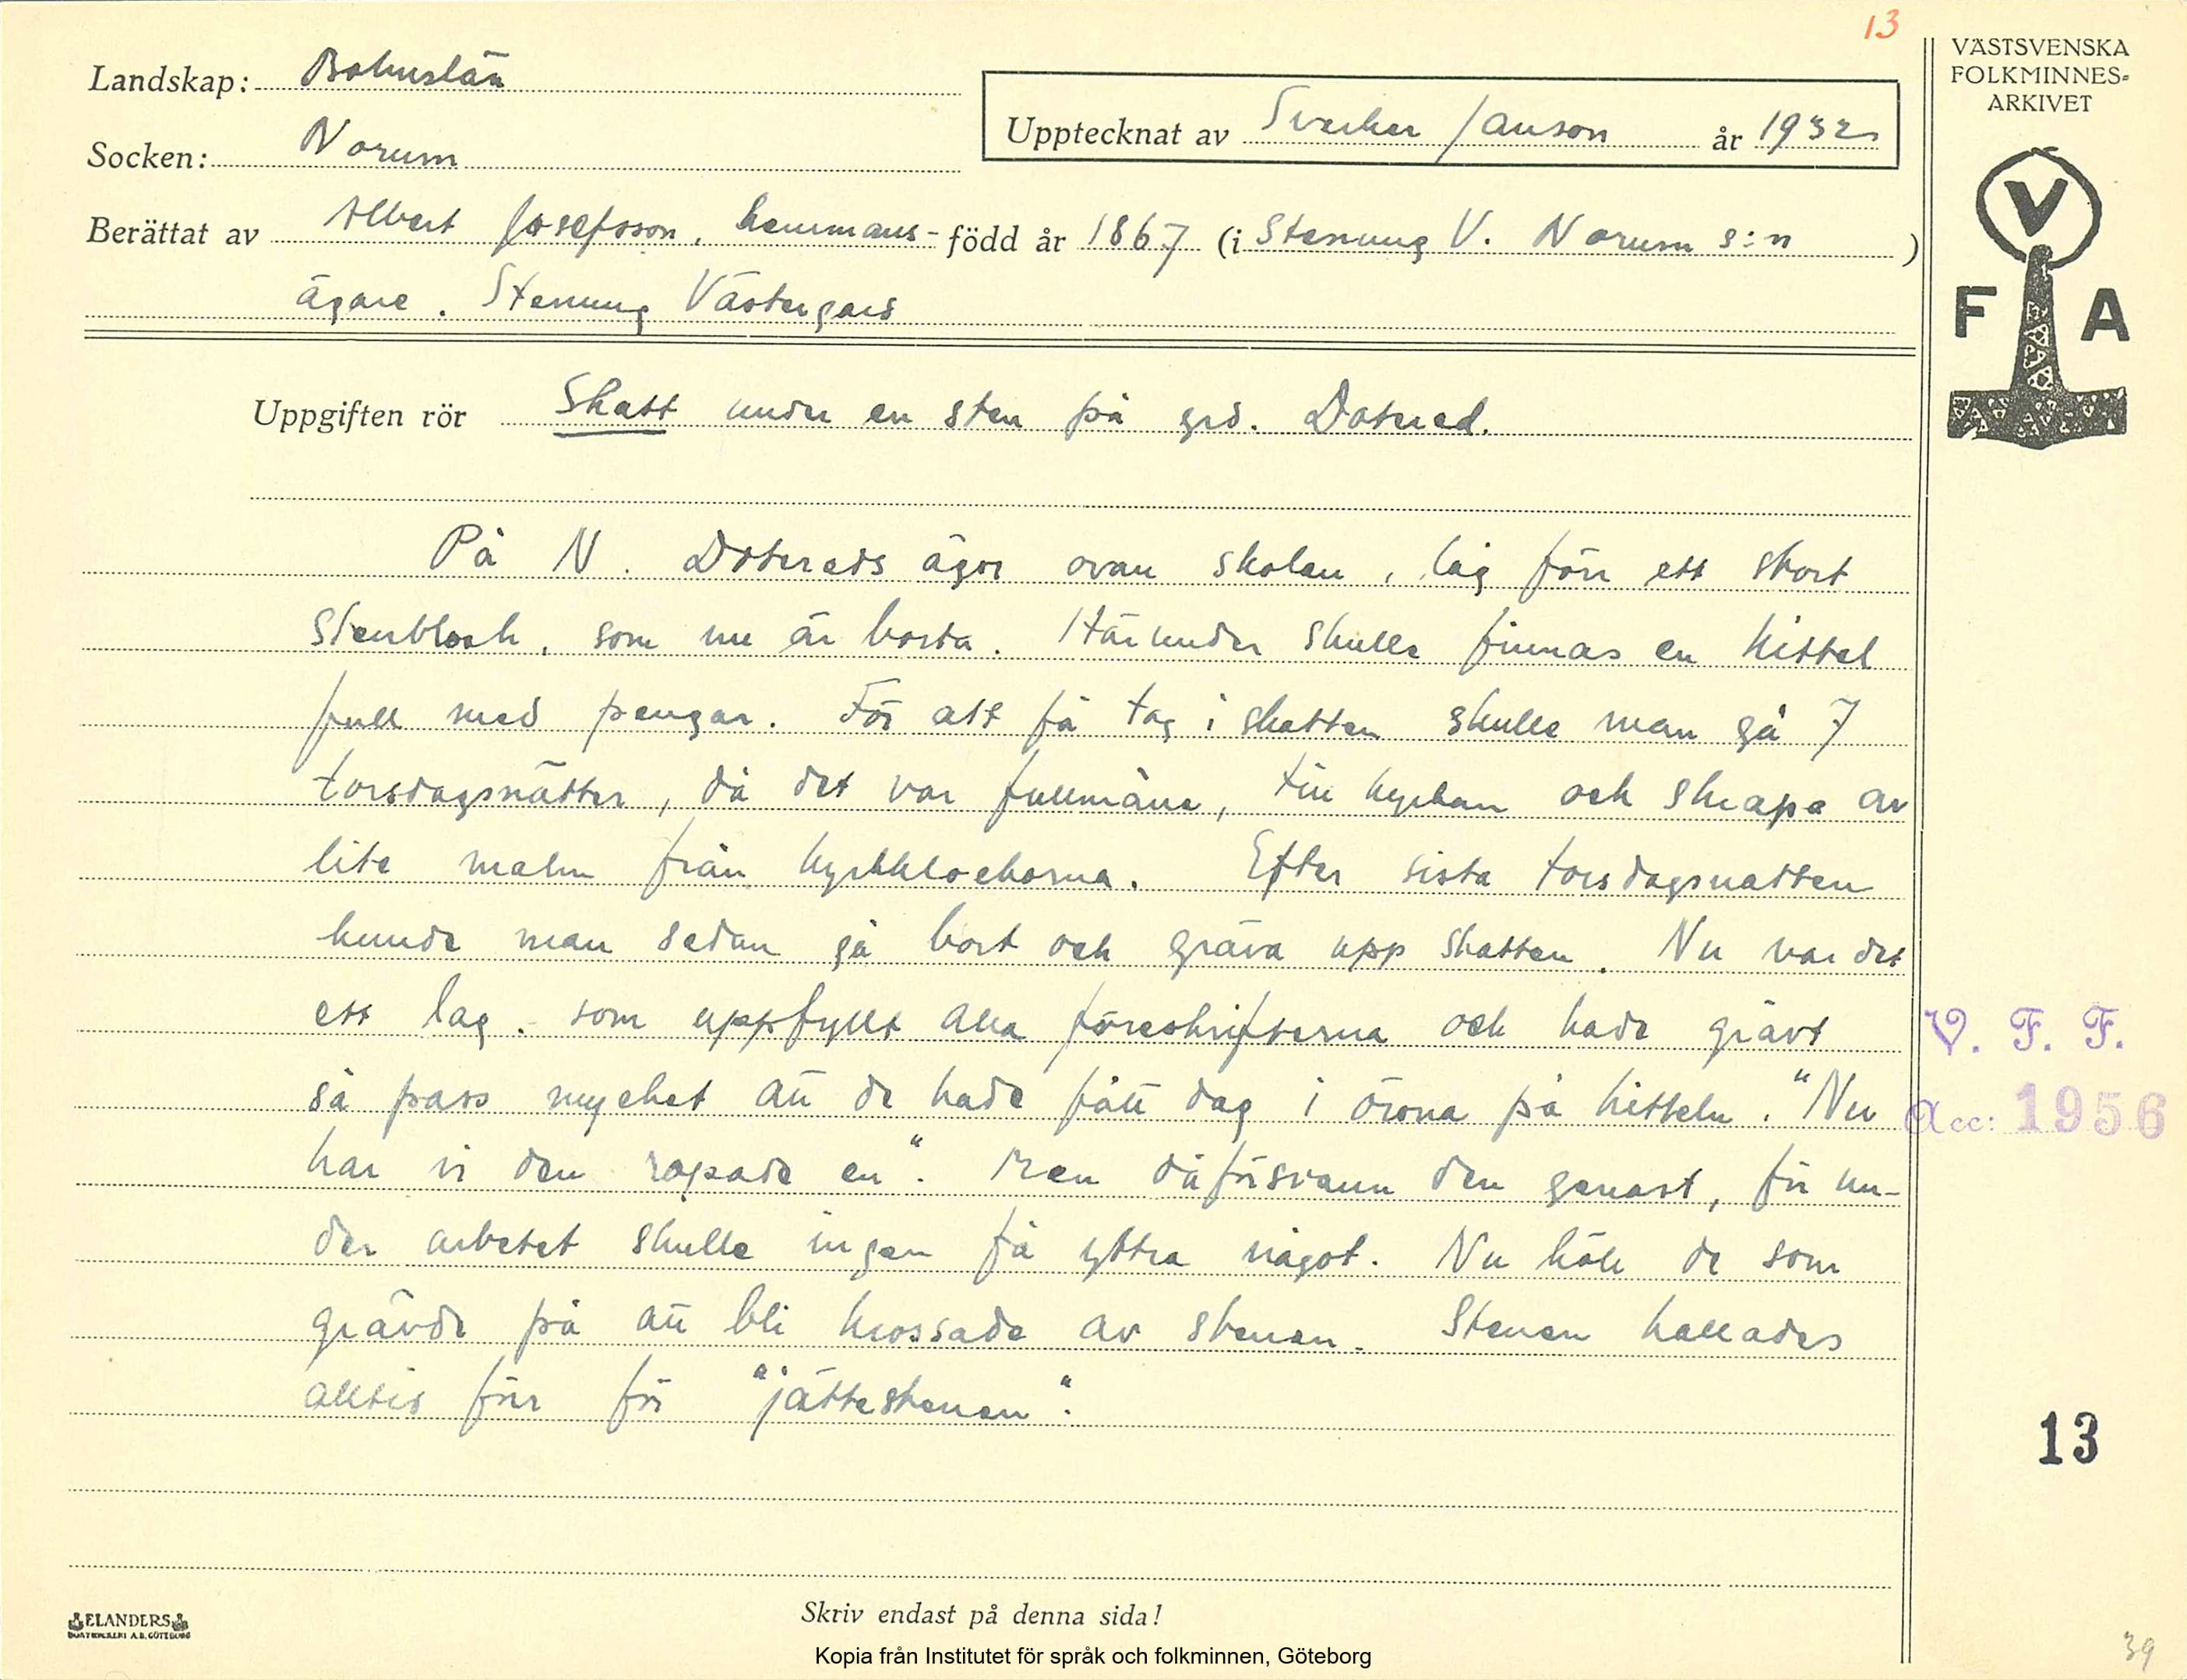 13
Landskap: Bohuslän
Socken: Norum
Upptecknat av Sverker Janson år 1932
Berättat av Albert Josefsson, hemmans- född år 1867 (i Stenung V. Norum s:n )
ägare. Stenung Västergård
Uppgiften rör Skatt under en sten på grd. Dotered.
På N. Dotereds ägor ovan skolan, låg förr ett stort
stenblock, som nu är borta. Härunder skulle finnas en kittel
full med pengar. För att få tag i skatten skulle man gå 7
torsdagsnätter, då det var fullmåne, till kyrkan och skrapa av
lite malm från kyrkklockorna. Efter sista torsdagsnatten
kunde man sedan gå bort och gräva upp skatten. Nu var det
ett lag. som uppfyllt alla föreskrifterna och hade grävt
så pass mycket att de hade fått dag i örona på kitteln. "Nu
har vi den ropade en". Men då försvann den genast, för un-
der arbetet skulle ingen få yttra något. Nu höll de som
grävde på att bli krossade av stenen. Stenen kallades
alltid förr för "jättestenen".
VÄSTSVENSKA
FOLKMINNES-
ARKIVET
V
F A
V. F. F.
Acc: 1956
13
ELANDERS
BOKTRYCKERI A.B. GÖTEBORG
Skriv endast på denna sida!
Kopia från Institutet för språk och folkminnen, Göteborg
39